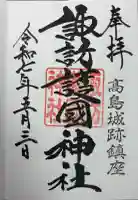 奉拝
高島城跡鎮座
諏訪護國神社
令和七年五月三日